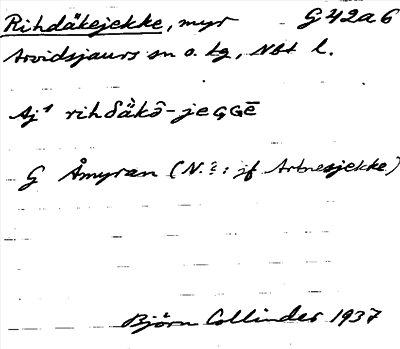 Rihdåkejekke, myr G 42a6
Arvidsjaurs sn o. tg, Nbt l.
Aj¹ rihδǟkɔ̄̂-jeGGē
G Åmyran (N.?: jf Arbnesjekke)
Björn Collinder 1937